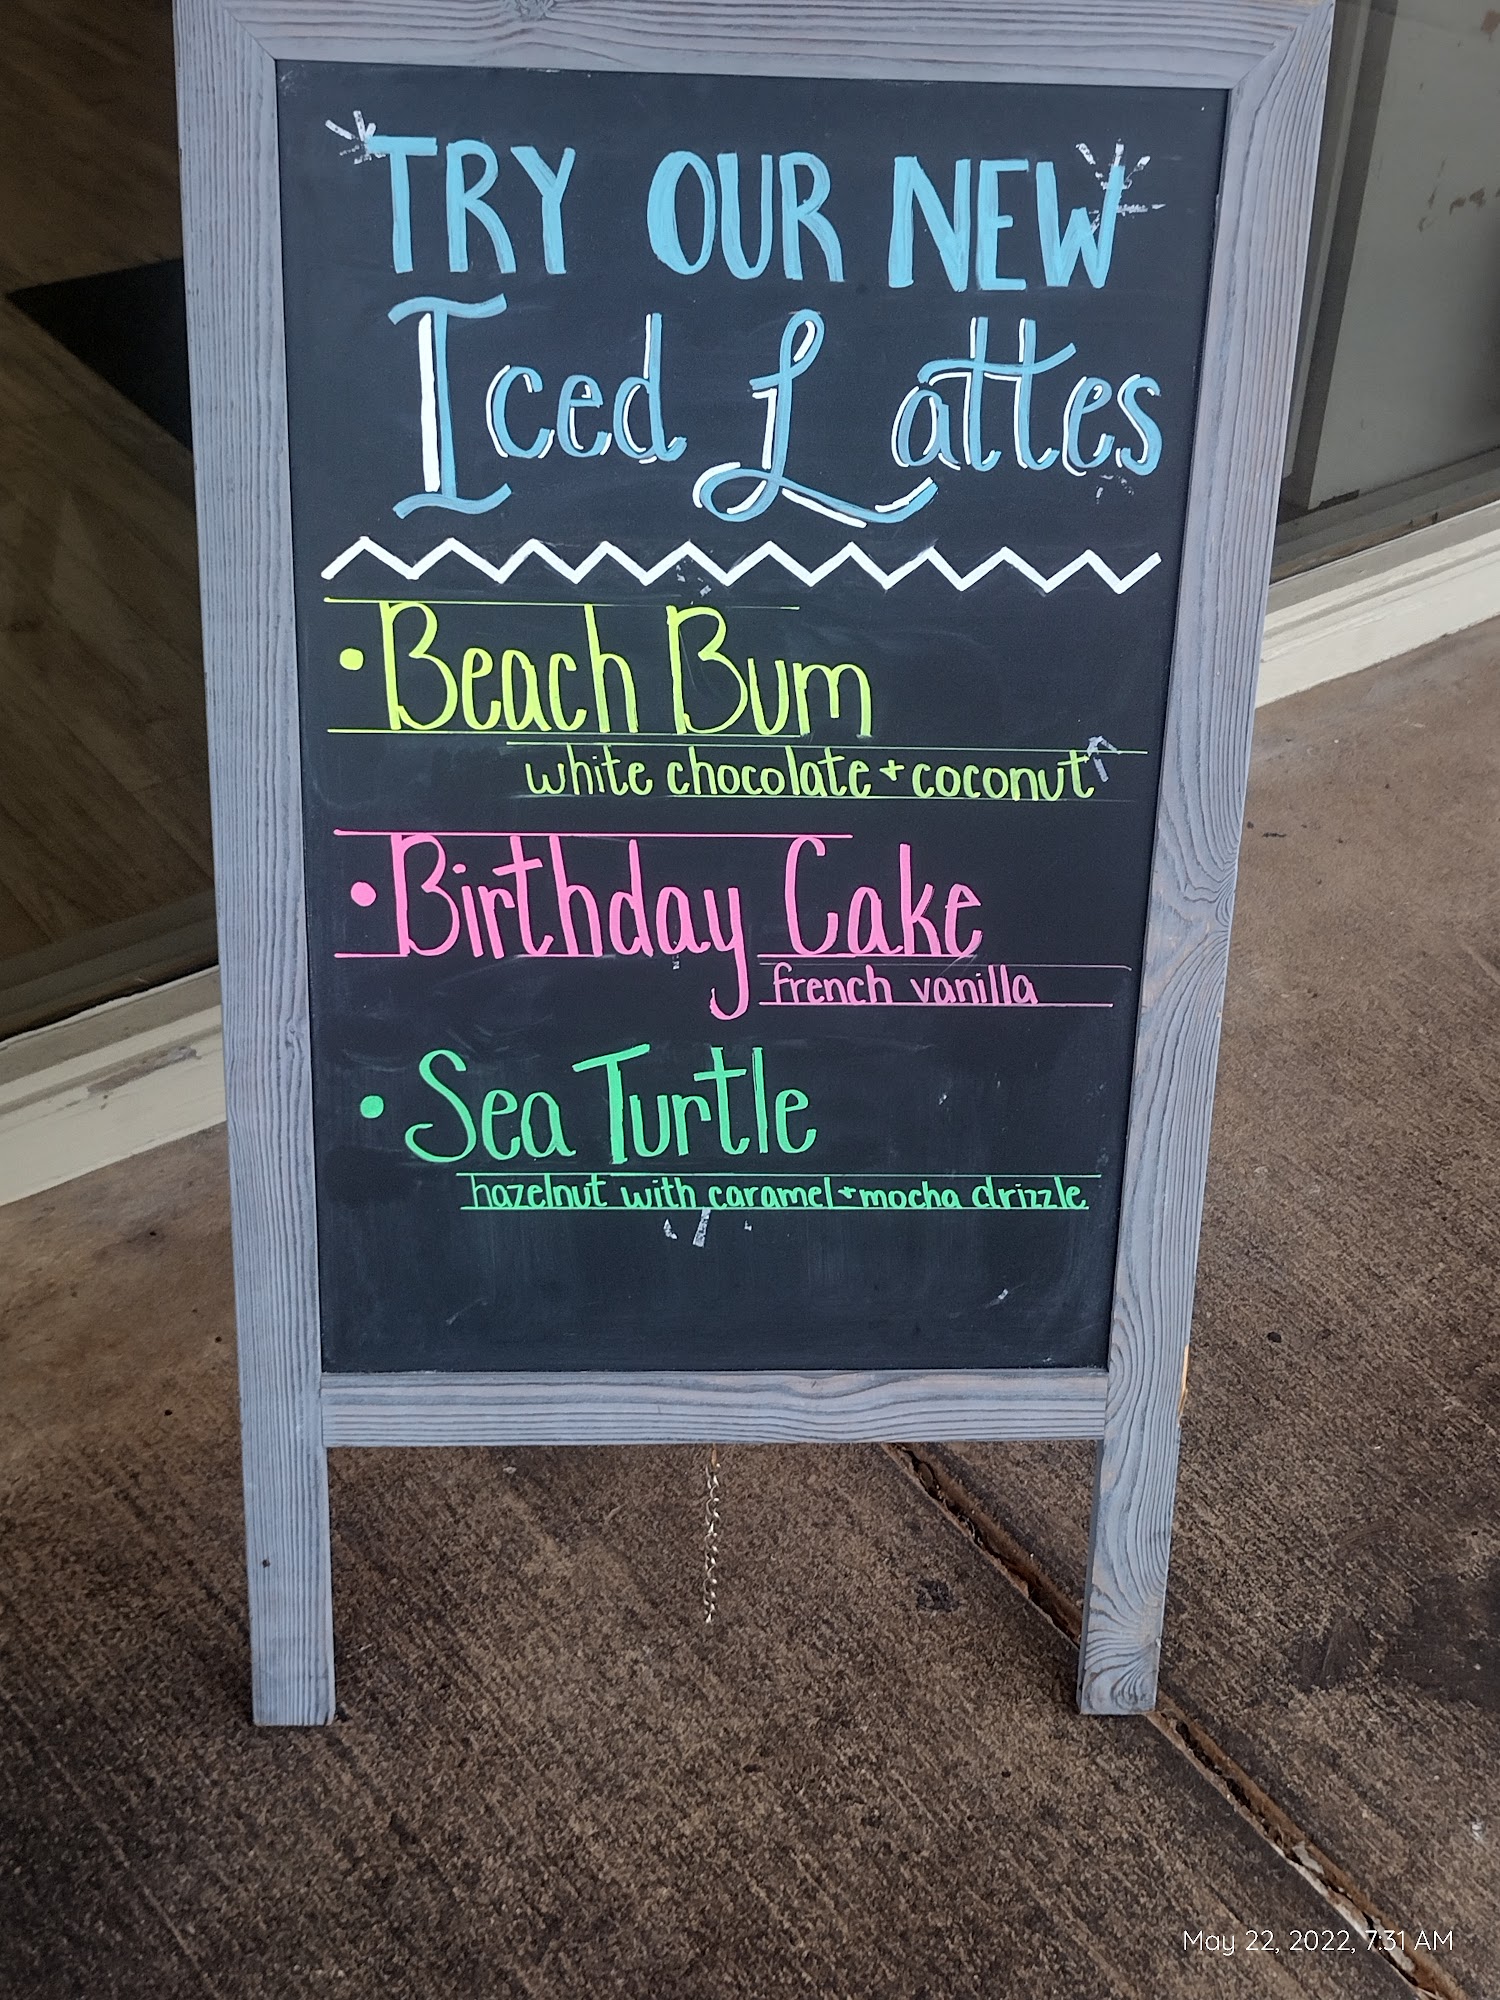 TRY OUR NEW
Iced Lattes
• Beach Bum
white chocolate + coconut
• Birthday Cake
french vanilla
• Sea Turtle
hazelnut with caramel + mocha drizzle
May 22, 2022, 7:31 AM